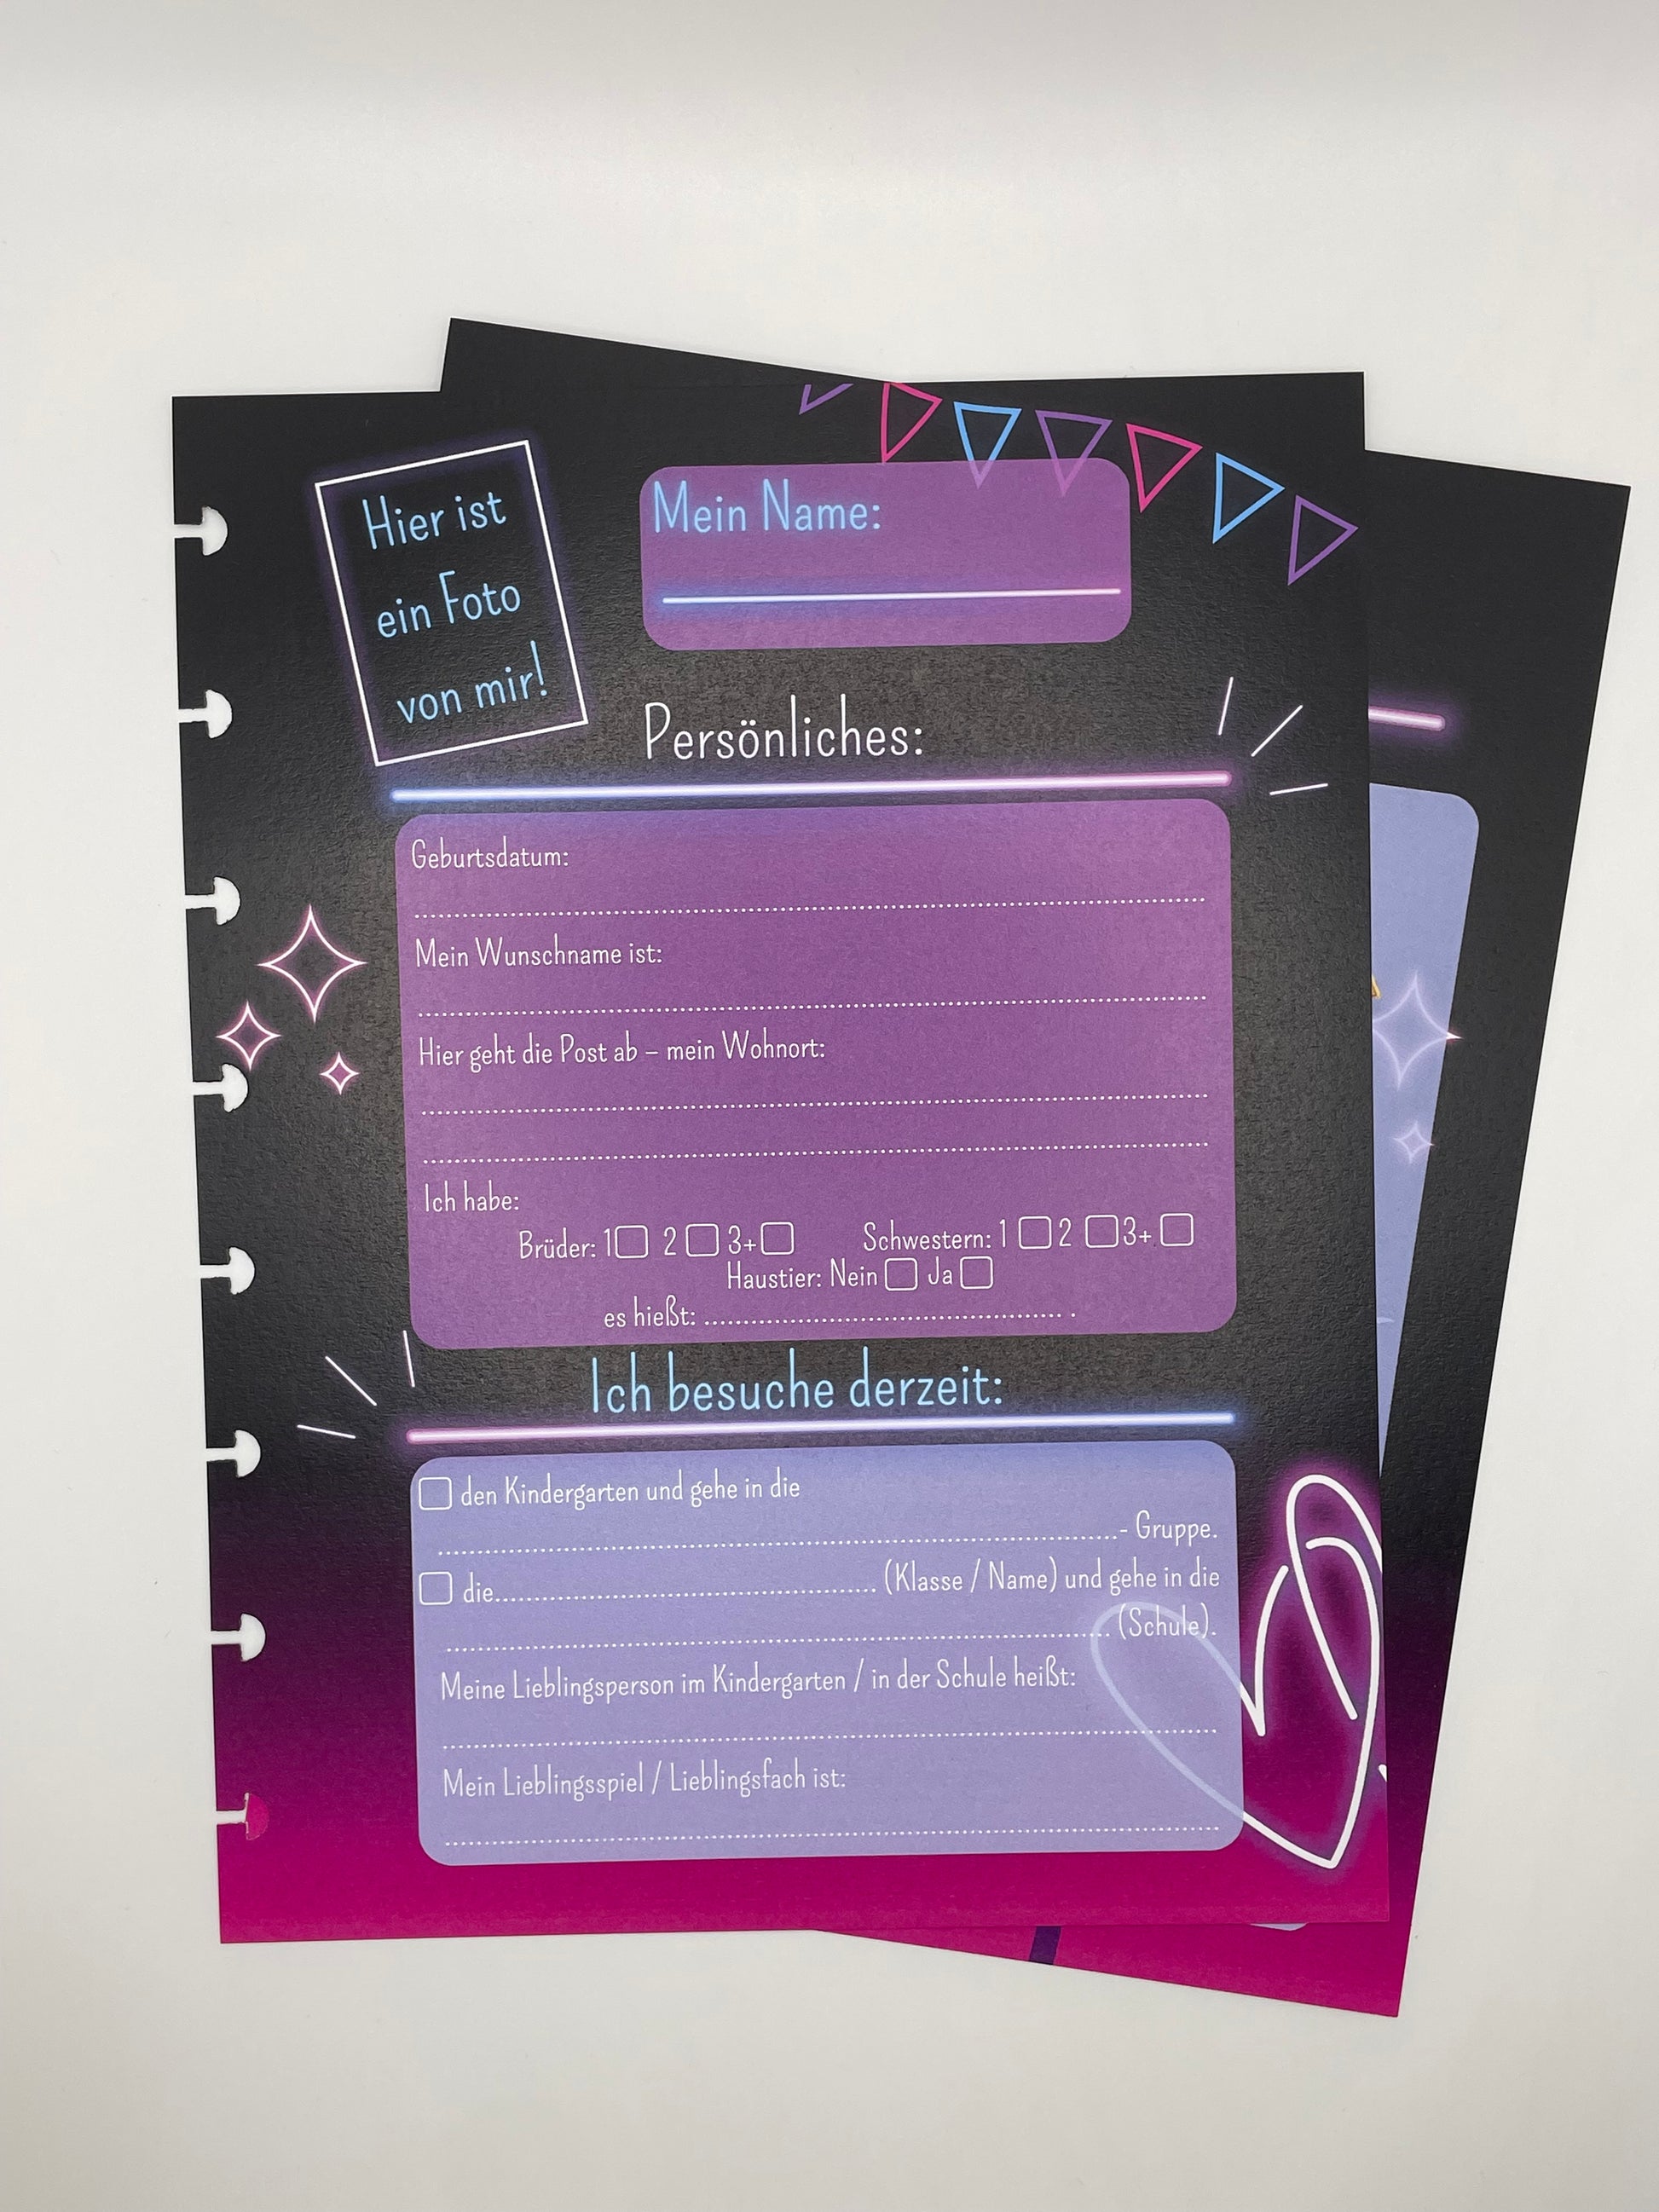 Hier ist
ein Foto
von mir!
Mein Name:
Persönliches:
Geburtsdatum:
Mein Wunschname ist:
Hier geht die Post ab – mein Wohnort:
Ich habe:
Brüder: 1 2 3+ Schwestern: 1 2 3+
Haustier: Nein Ja
es hießt: .
Ich besuche derzeit:
den Kindergarten und gehe in die
- Gruppe.
die (Klasse / Name) und gehe in die
(Schule).
Meine Lieblingsperson im Kindergarten / in der Schule heißt:
Mein Lieblingsspiel / Lieblingsfach ist: